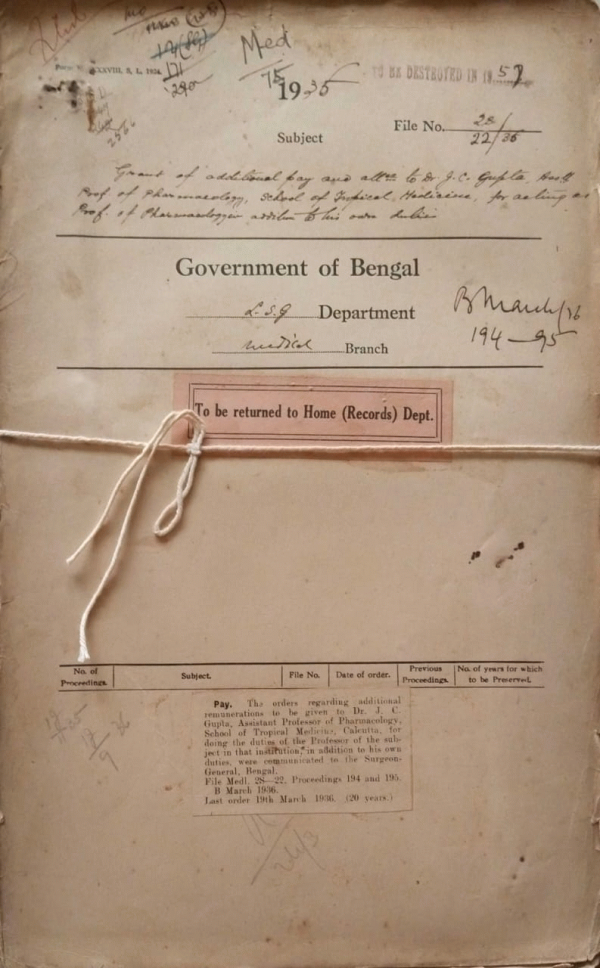 Med
75
1935
TO BE DESTROYED IN 1957
File No. 28/22/35
Subject
Grant of additional pay and allce to Dr. J. C. Gupta, Asstt
Prof. of Pharmacology, School of Tropical Medicine, for acting as
Prof. of Pharmacology in addition to his own duties
Government of Bengal
L. S. G Department
Medical Branch
B March/36
194—95
To be returned to Home (Records) Dept.
No. of Proceedings. Subject. File No. Date of order. Previous Proceedings. No. of years for which to be Preserved.
Pay. The orders regarding additional
remunerations to be given to Dr. J. C.
Gupta, Assistant Professor of Pharmacology,
School of Tropical Medicine, Calcutta, for
doing the duties of the Professor of the sub-
ject in that institution, in addition to his own
duties, were communicated to the Surgeon-
General, Bengal.
File Medl. 28—22, Proceedings 194 and 195.
B March 1936.
Last order 19th March 1936. (20 years.)
24/3